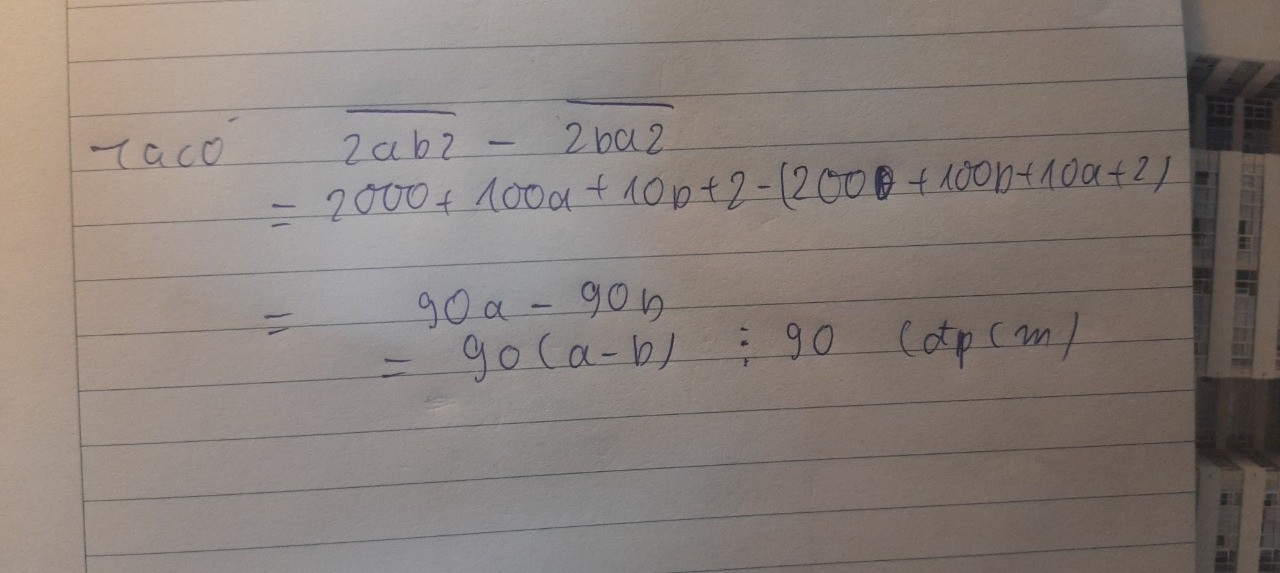 Ta có $\overline{2ab2} - \overline{2ba2}$
= 2000 + 100a + 10b + 2 - (2000 + 100b + 10a + 2)
= 90a - 90b
= 90(a-b) ⋮ 90 (đpcm)